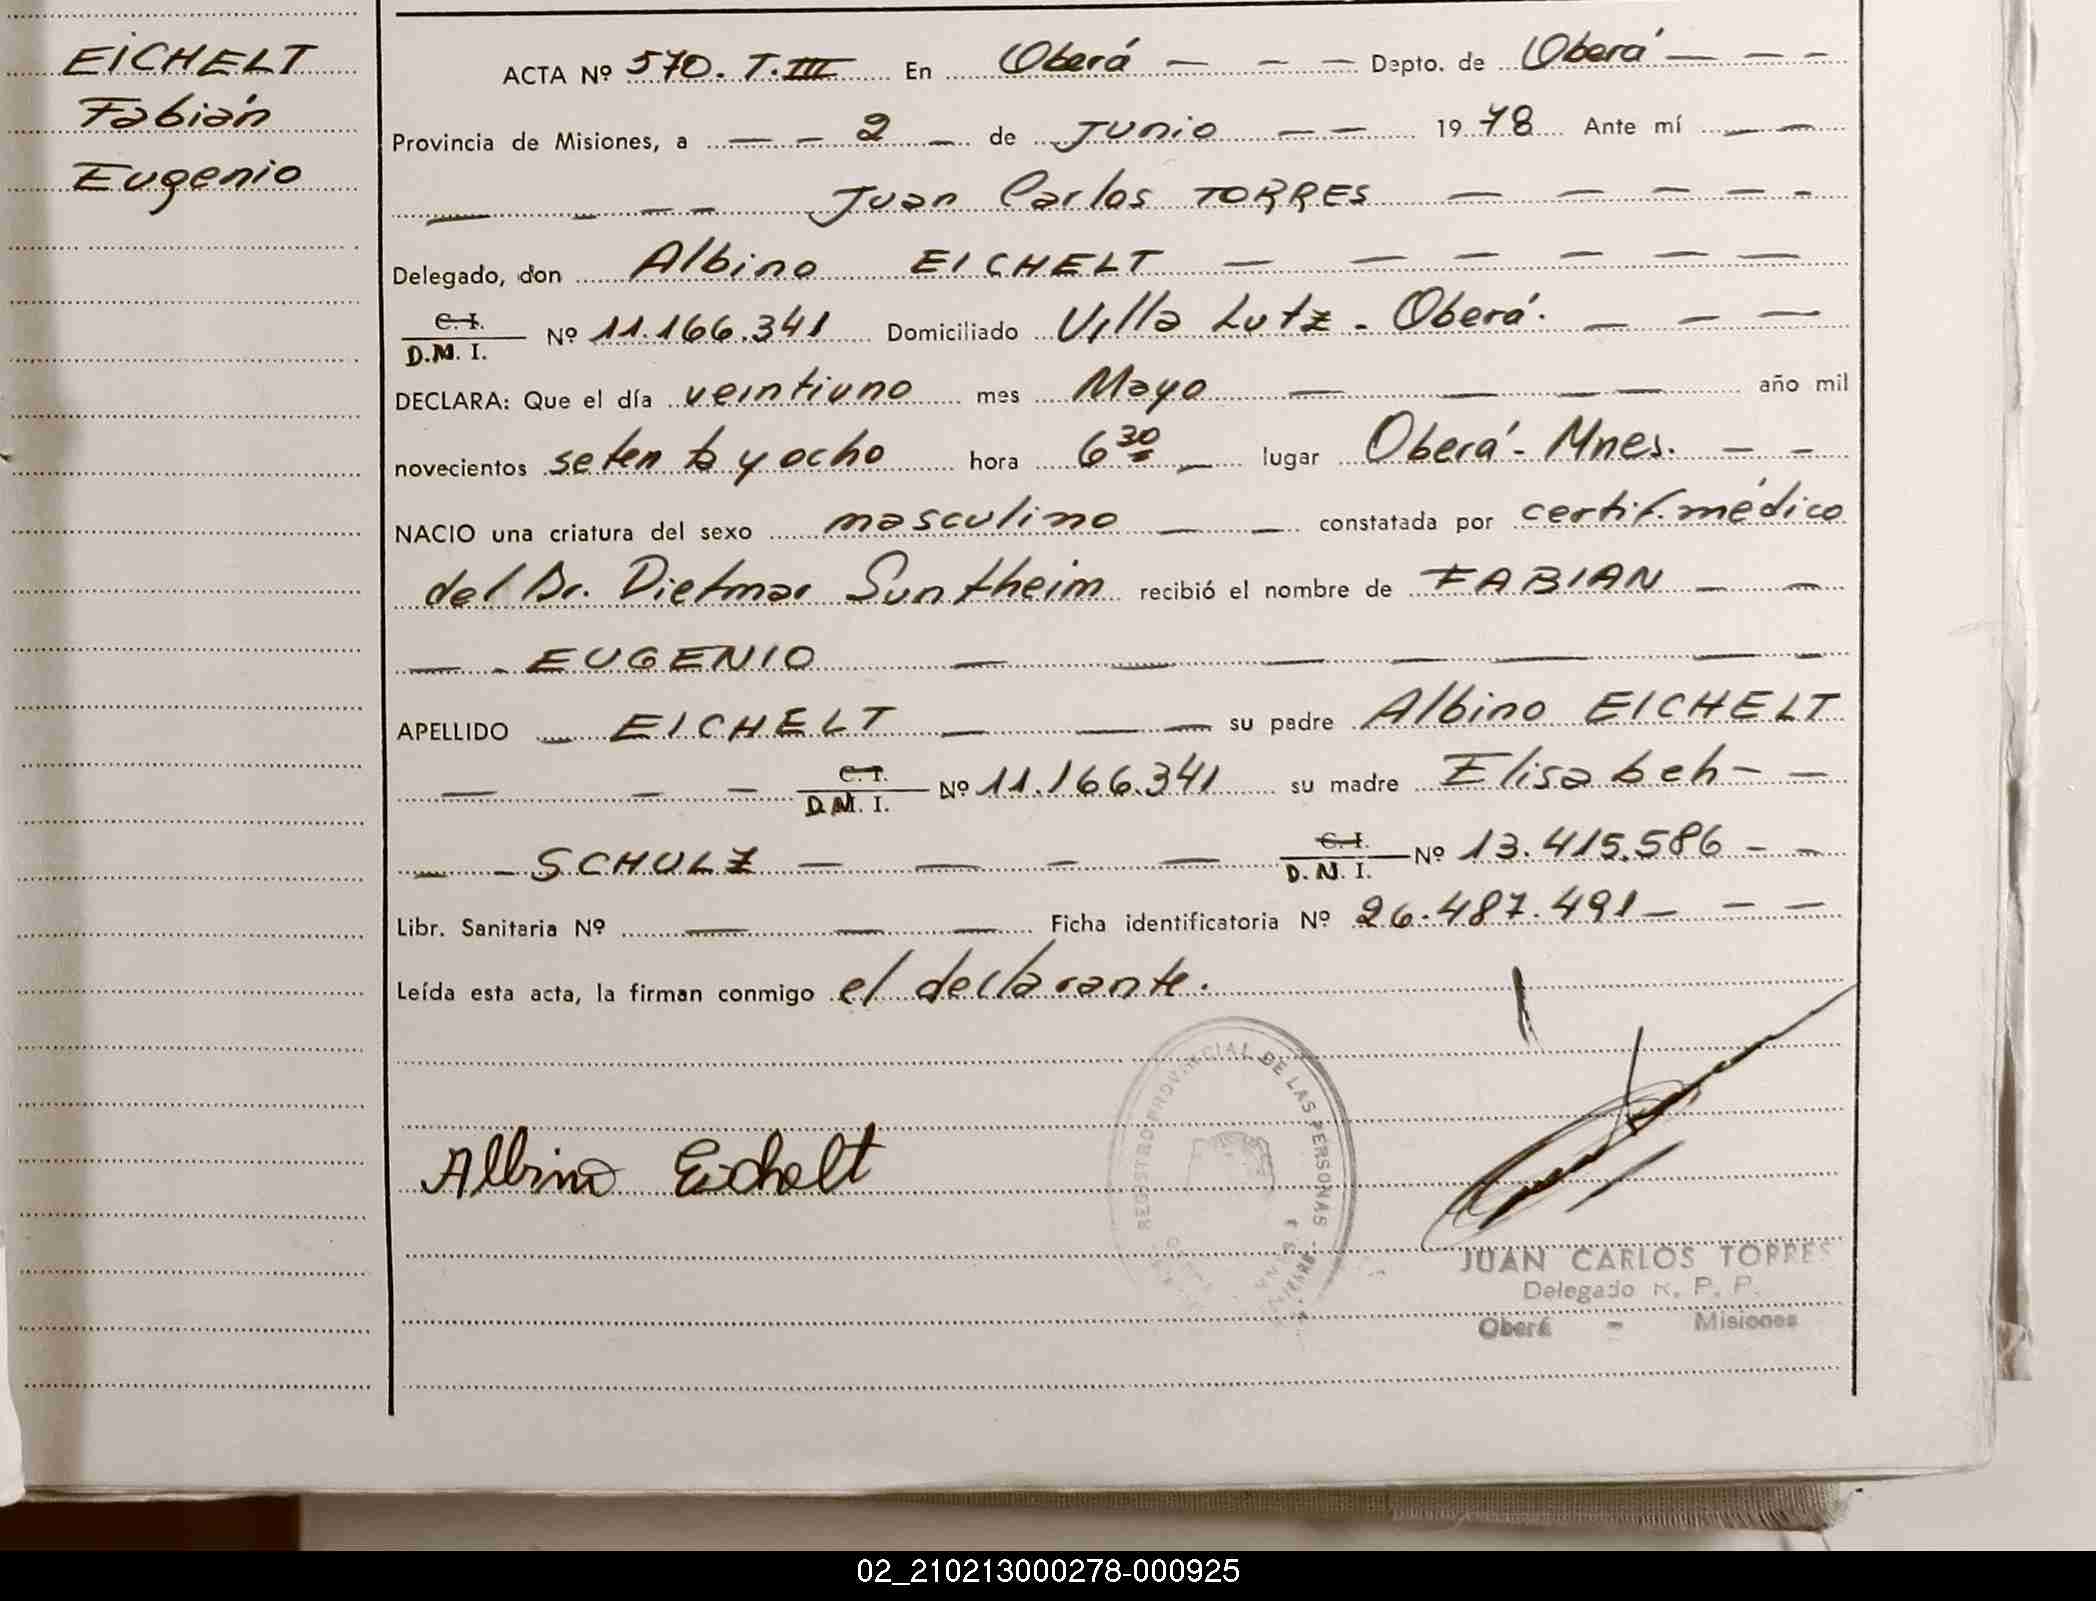 EICHELT
Fabián
Eugenio
ACTA Nº 570. T.III En Oberá — — — Depto. de Oberá — — —
Provincia de Misiones, a — — 2 — de Junio — — 1978 Ante mí — —
— — — — Juan Carlos TORRES — — — — -
Delegado, don Albino EICHELT — — — — — —
C.I.
D.M.I. Nº 11.166.341 Domiciliado Villa Lutz - Oberá. — — —
DECLARA: Que el día veintiuno mes Mayo — — — — año mil
novecientos setenta y ocho hora 6 30 — lugar Oberá - Mnes. — —
NACIO una criatura del sexo masculino — — constatada por certif. médico
del Dr. Dietmar Suntheim recibió el nombre de FABIAN — —
— - EUGENIO — — — — — — —
APELLIDO — EICHELT — — — su padre Albino EICHELT
— — — C.I.
D.M.I. Nº 11.166.341 su madre Elisabeh — —
— - SCHULZ — — — — C.I.
D.N.I. Nº 13.415.586 - -
Libr. Sanitaria Nº — — — Ficha identificatoria Nº 26.487.491 — — —
Leída esta acta, la firman conmigo el declarante.
REGISTRO PROVINCIAL DE LAS PERSONAS
Albino Eichelt
JUAN CARLOS TORRES
Delegado R. P. P.
Oberá - Misiones
02_210213000278-000925